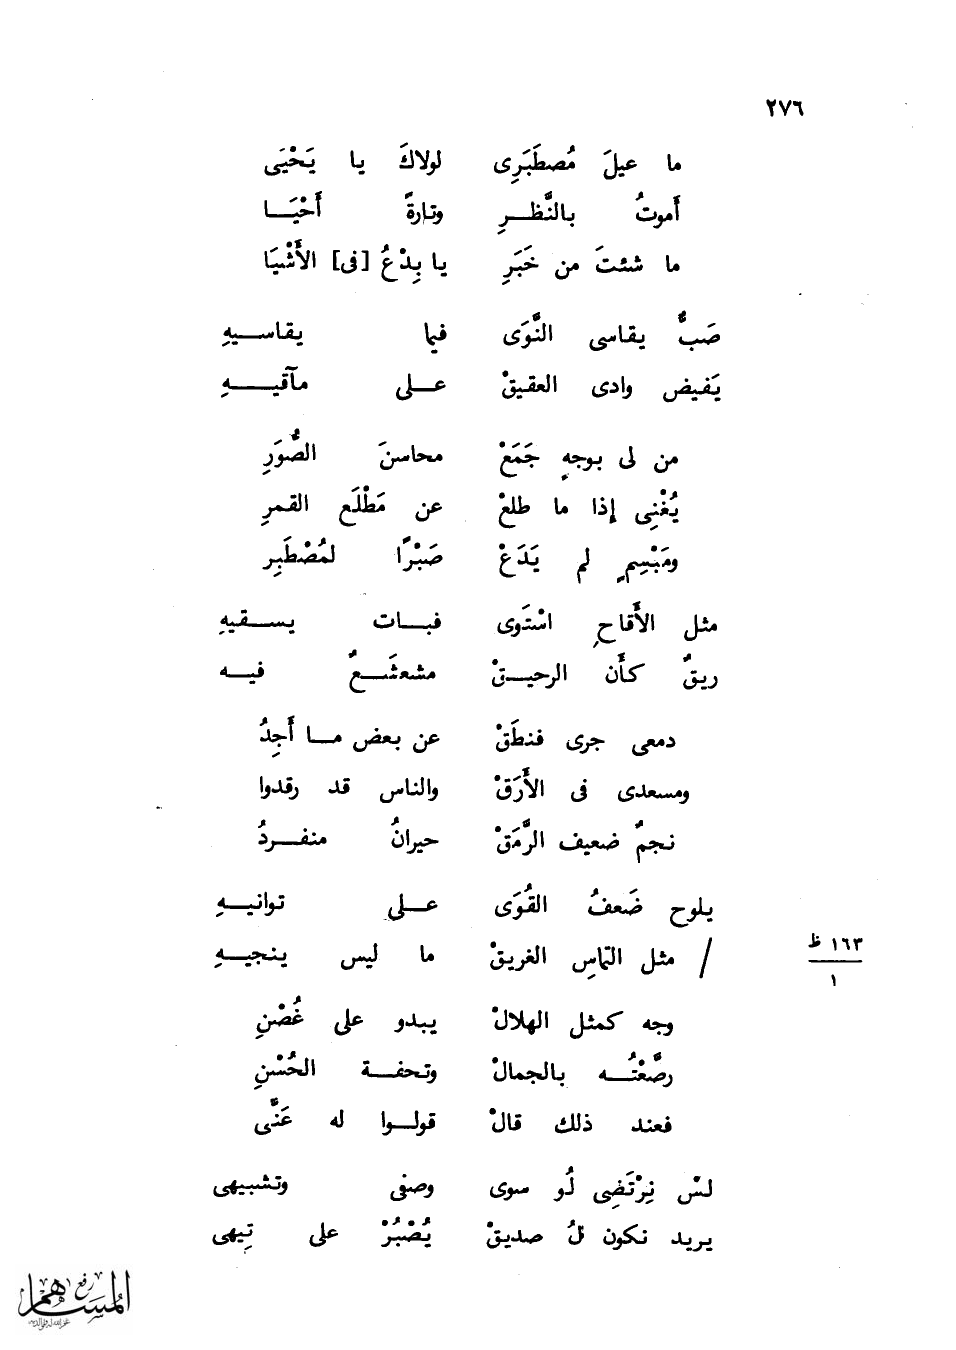 ٢٧٦
ما عيلَ مُصطَبَرِى لولاكَ يا يَحْيَى
أَموتُ بالنَّظرِ وتارةً أَحْيَا
ما شئتَ من خَبَرِ يا بِدْعُ [فى] الأَشْيَا
صَبٌّ يقاسى النَّوَى فيما يقاسيهِ
يَفيض وادى العقيقْ على مآقيهِ
من لى بوجهٍ جَمَعْ محاسنَ الصُّوَرِ
يُغْنِى إذا ما طلعْ عن مَطْلَعِ القمرِ
ومَبْسِمٍ لم يَدَعْ صَبْرًا لمُصْطَبِرِ
مثل الأَقاحِ اسْتَوى فبات يسقيهِ
ريقٌ كأَن الرحيقْ مشعشَعٌ فيه
دمعى جرى فنطَقْ عن بعض ما أَجِدُ
ومسعدى فى الأَرَقْ والناس قد رقدوا
نجمٌ ضعيف الرَّمَقْ حيرانُ منفردُ
يلوح ضَعفُ القُوَى على توانيهِ
/ مثل التماسِ الغريقْ ما ليس ينجيهِ
١٦٣ ظ
١
وجه كمثل الهلالْ يبدو على غُصْنِ
رصَّعْتُه بالجمالْ وتحفة الحُسْنِ
فعند ذلك قالْ قولوا له عَنَّى
لسْ نِرْتَضِى لُو سوى وصفى وتشبيهى
يريد نكون لُ صديقْ يُصْبُرْ على تِيهى
رفع
المساهم